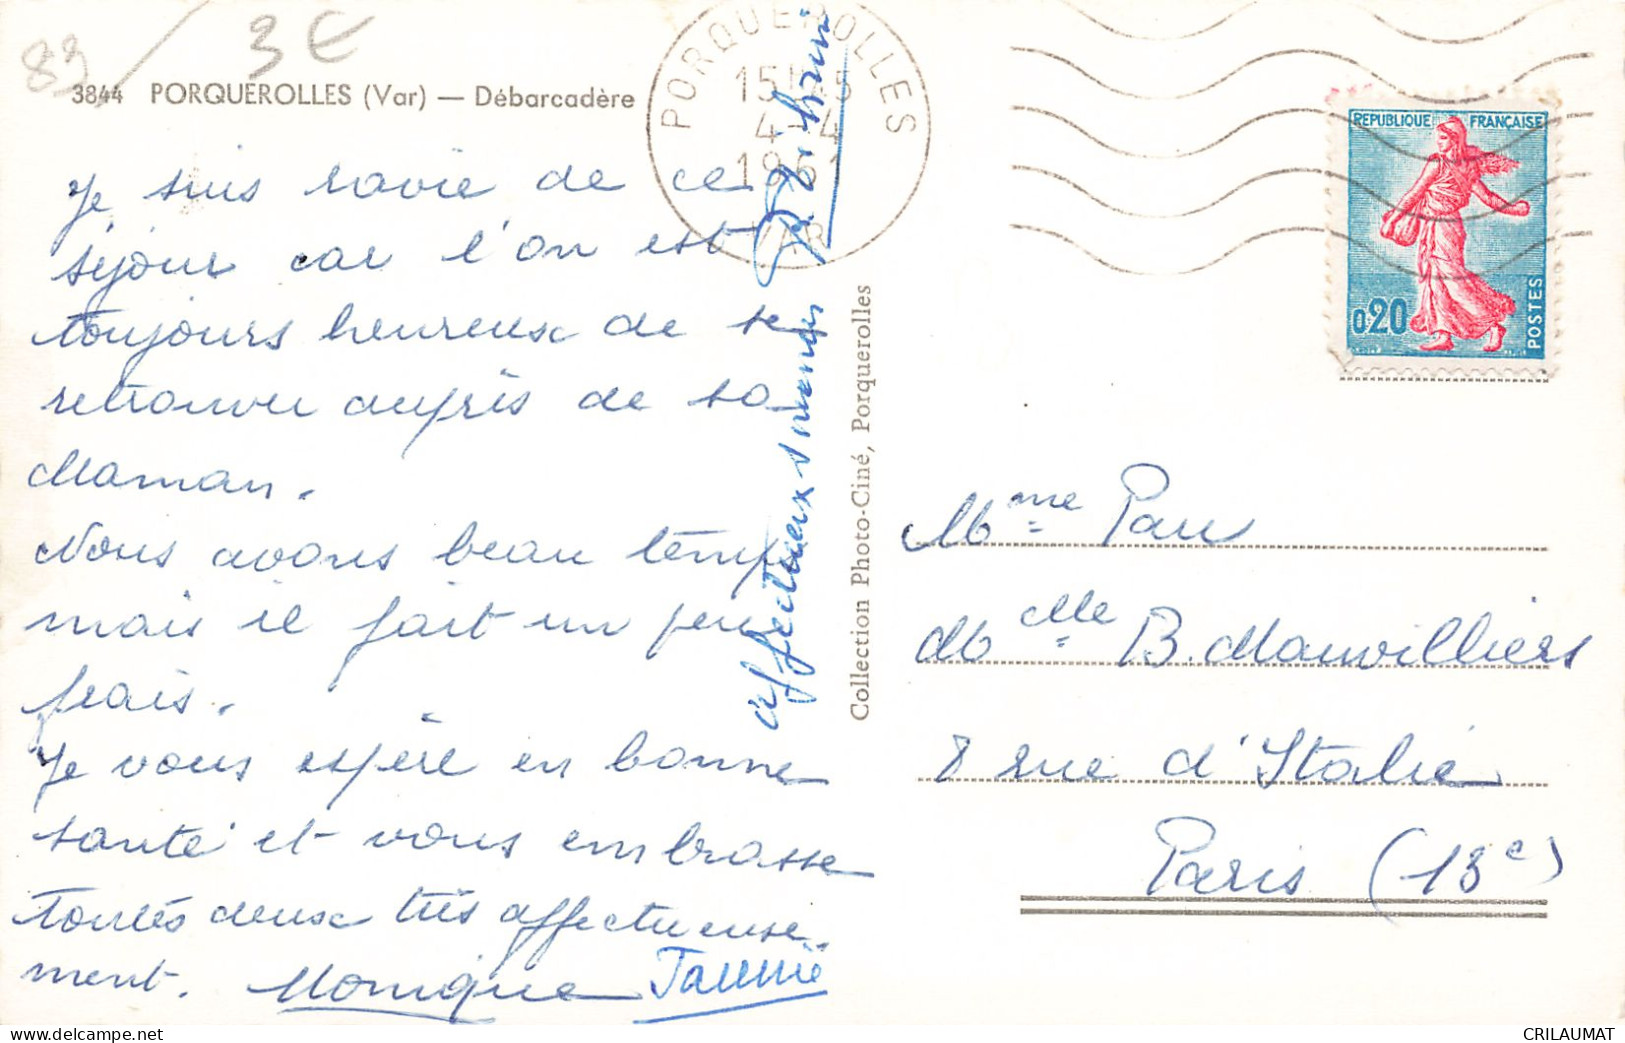 83
3€
3844 PORQUEROLLES (Var) — Débarcadère
Je suis ravie de ce
séjour car l'on est
toujours heureux de se
retrouver auprès de sa
Maman.
Nous avons beau temps
mais il fait un peu
frais.
Je vous espère en bonne
santé et vous embrasse
toutes deux très affectueuse-
ment. Monique
affectueux
Collection Photo-Ciné, Porquerolles
PORQUEROLLES
15H15
4-4
1961
VAR
REPUBLIQUE FRANÇAISE
0,20
POSTES
Mme Pau
Melle B. Mauvilliers
8 rue d'Italie
Paris (13e)
CRILAUMAT